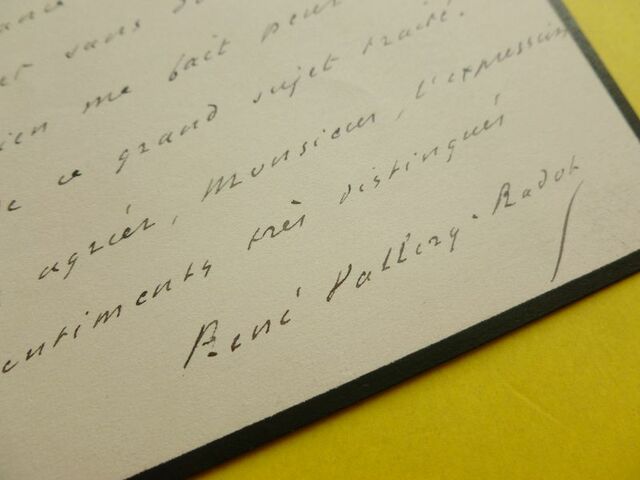 sans
me fait peur
ce grand sujet traité.
agréer, Monsieur, l'expression
sentiments très distingués
René Vallery-Radot